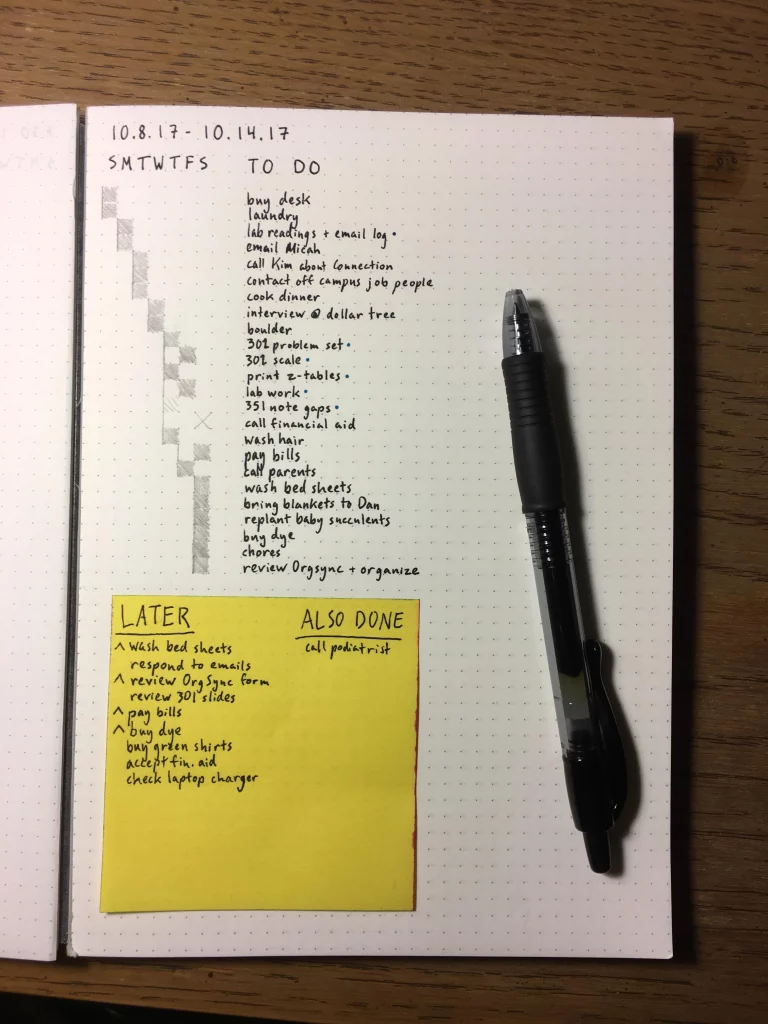 10.8.17 - 10.14.17
SMTWTFS TO DO
buy desk
laundry
lab readings + email log •
email Micah
call Kim about Connection
contact off campus job people
cook dinner
interview @ dollar tree
boulder
301 problem set •
302 scale •
print z-tables •
lab work •
351 note gaps •
call financial aid
wash hair
pay bills
call parents
wash bed sheets
bring blankets to Dan
replant baby succulents
buy dye
chores
review Orgsync + organize
LATER
^ wash bed sheets
respond to emails
^ review OrgSync form
review 301 slides
^ pay bills
^ buy dye
buy green shirts
accept fin. aid
check laptop charger
ALSO DONE
call podiatrist